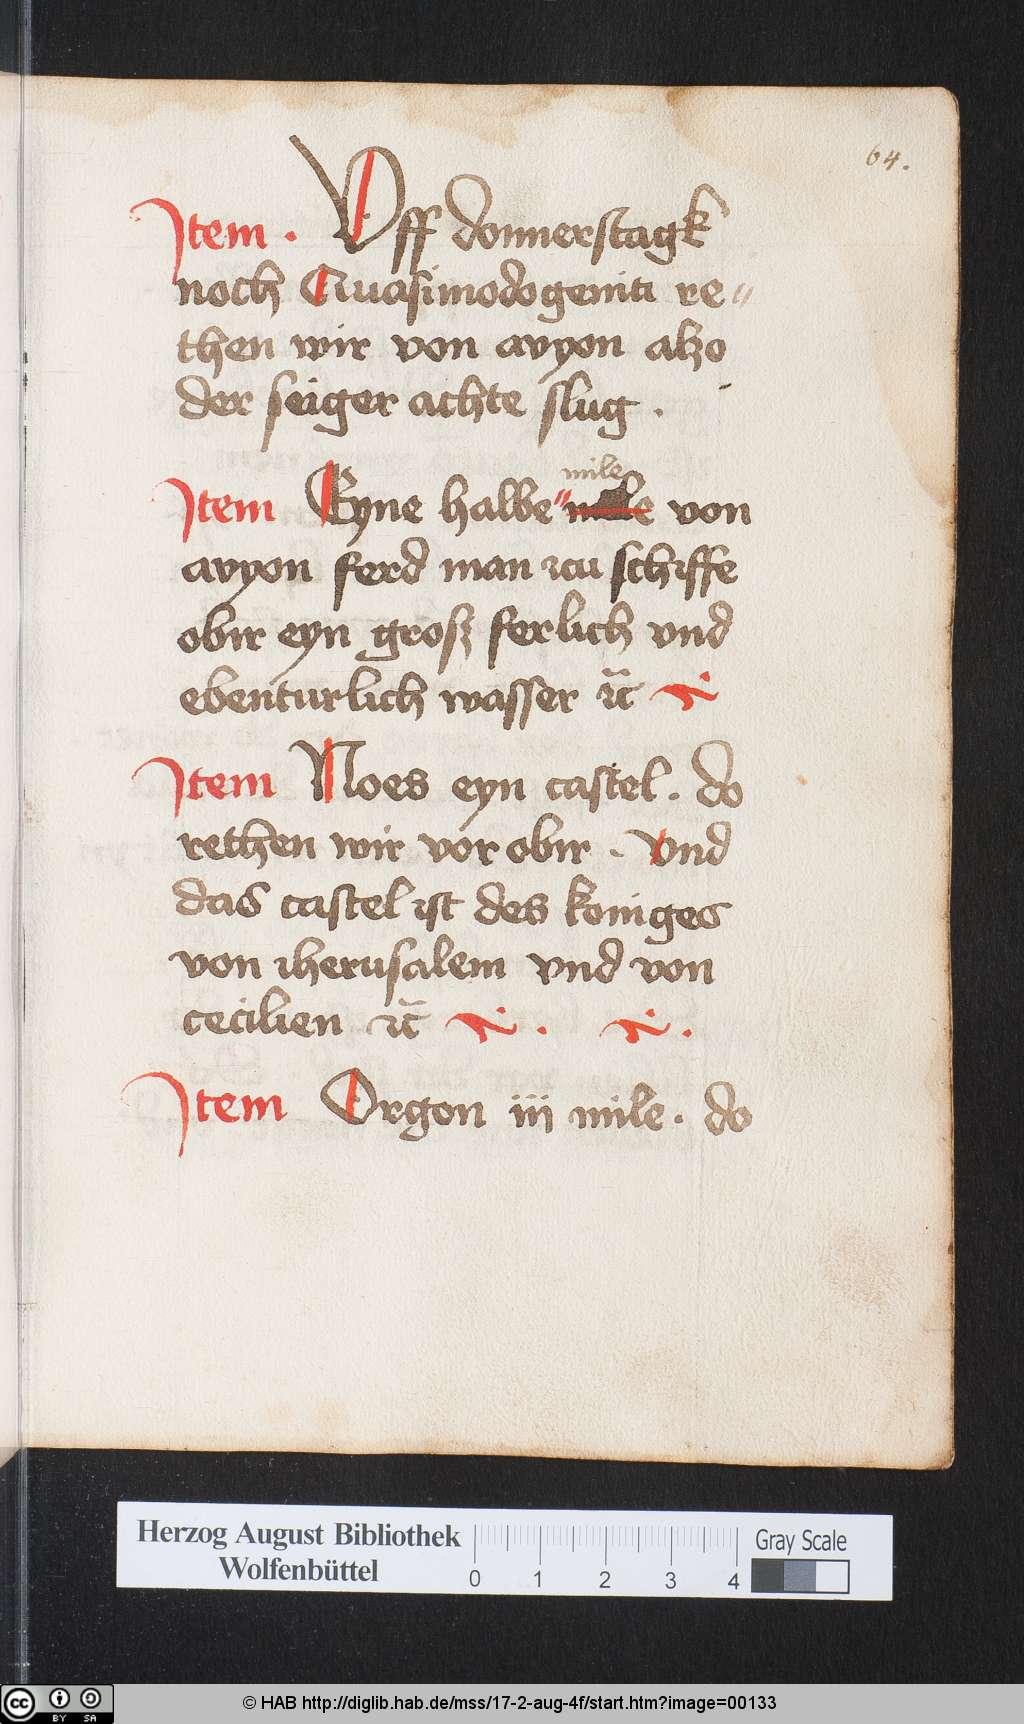 64.
Item . Vff donnerstagk
noch Quasimodogeniti re⸗
then wir von avyon alzo
der seiger achte slug .
mile
Item Eyne halbe mile von
avyon ferd man zcu schiffe
obir eyn grosz ferlich vnd
ebenturlich wasser ꝛc̃
Item Noes eyn castel . do
rethen wir vor obir . Vnd
das castel ist des koniges
von iherusalem vnd von
cecilien ꝛc̃
Item Orgon iij mile . do
Herzog August Bibliothek
Wolfenbüttel
0 1 2 3 4
Gray Scale
cc BY SA
© HAB http://diglib.hab.de/mss/17-2-aug-4f/start.htm?image=00133